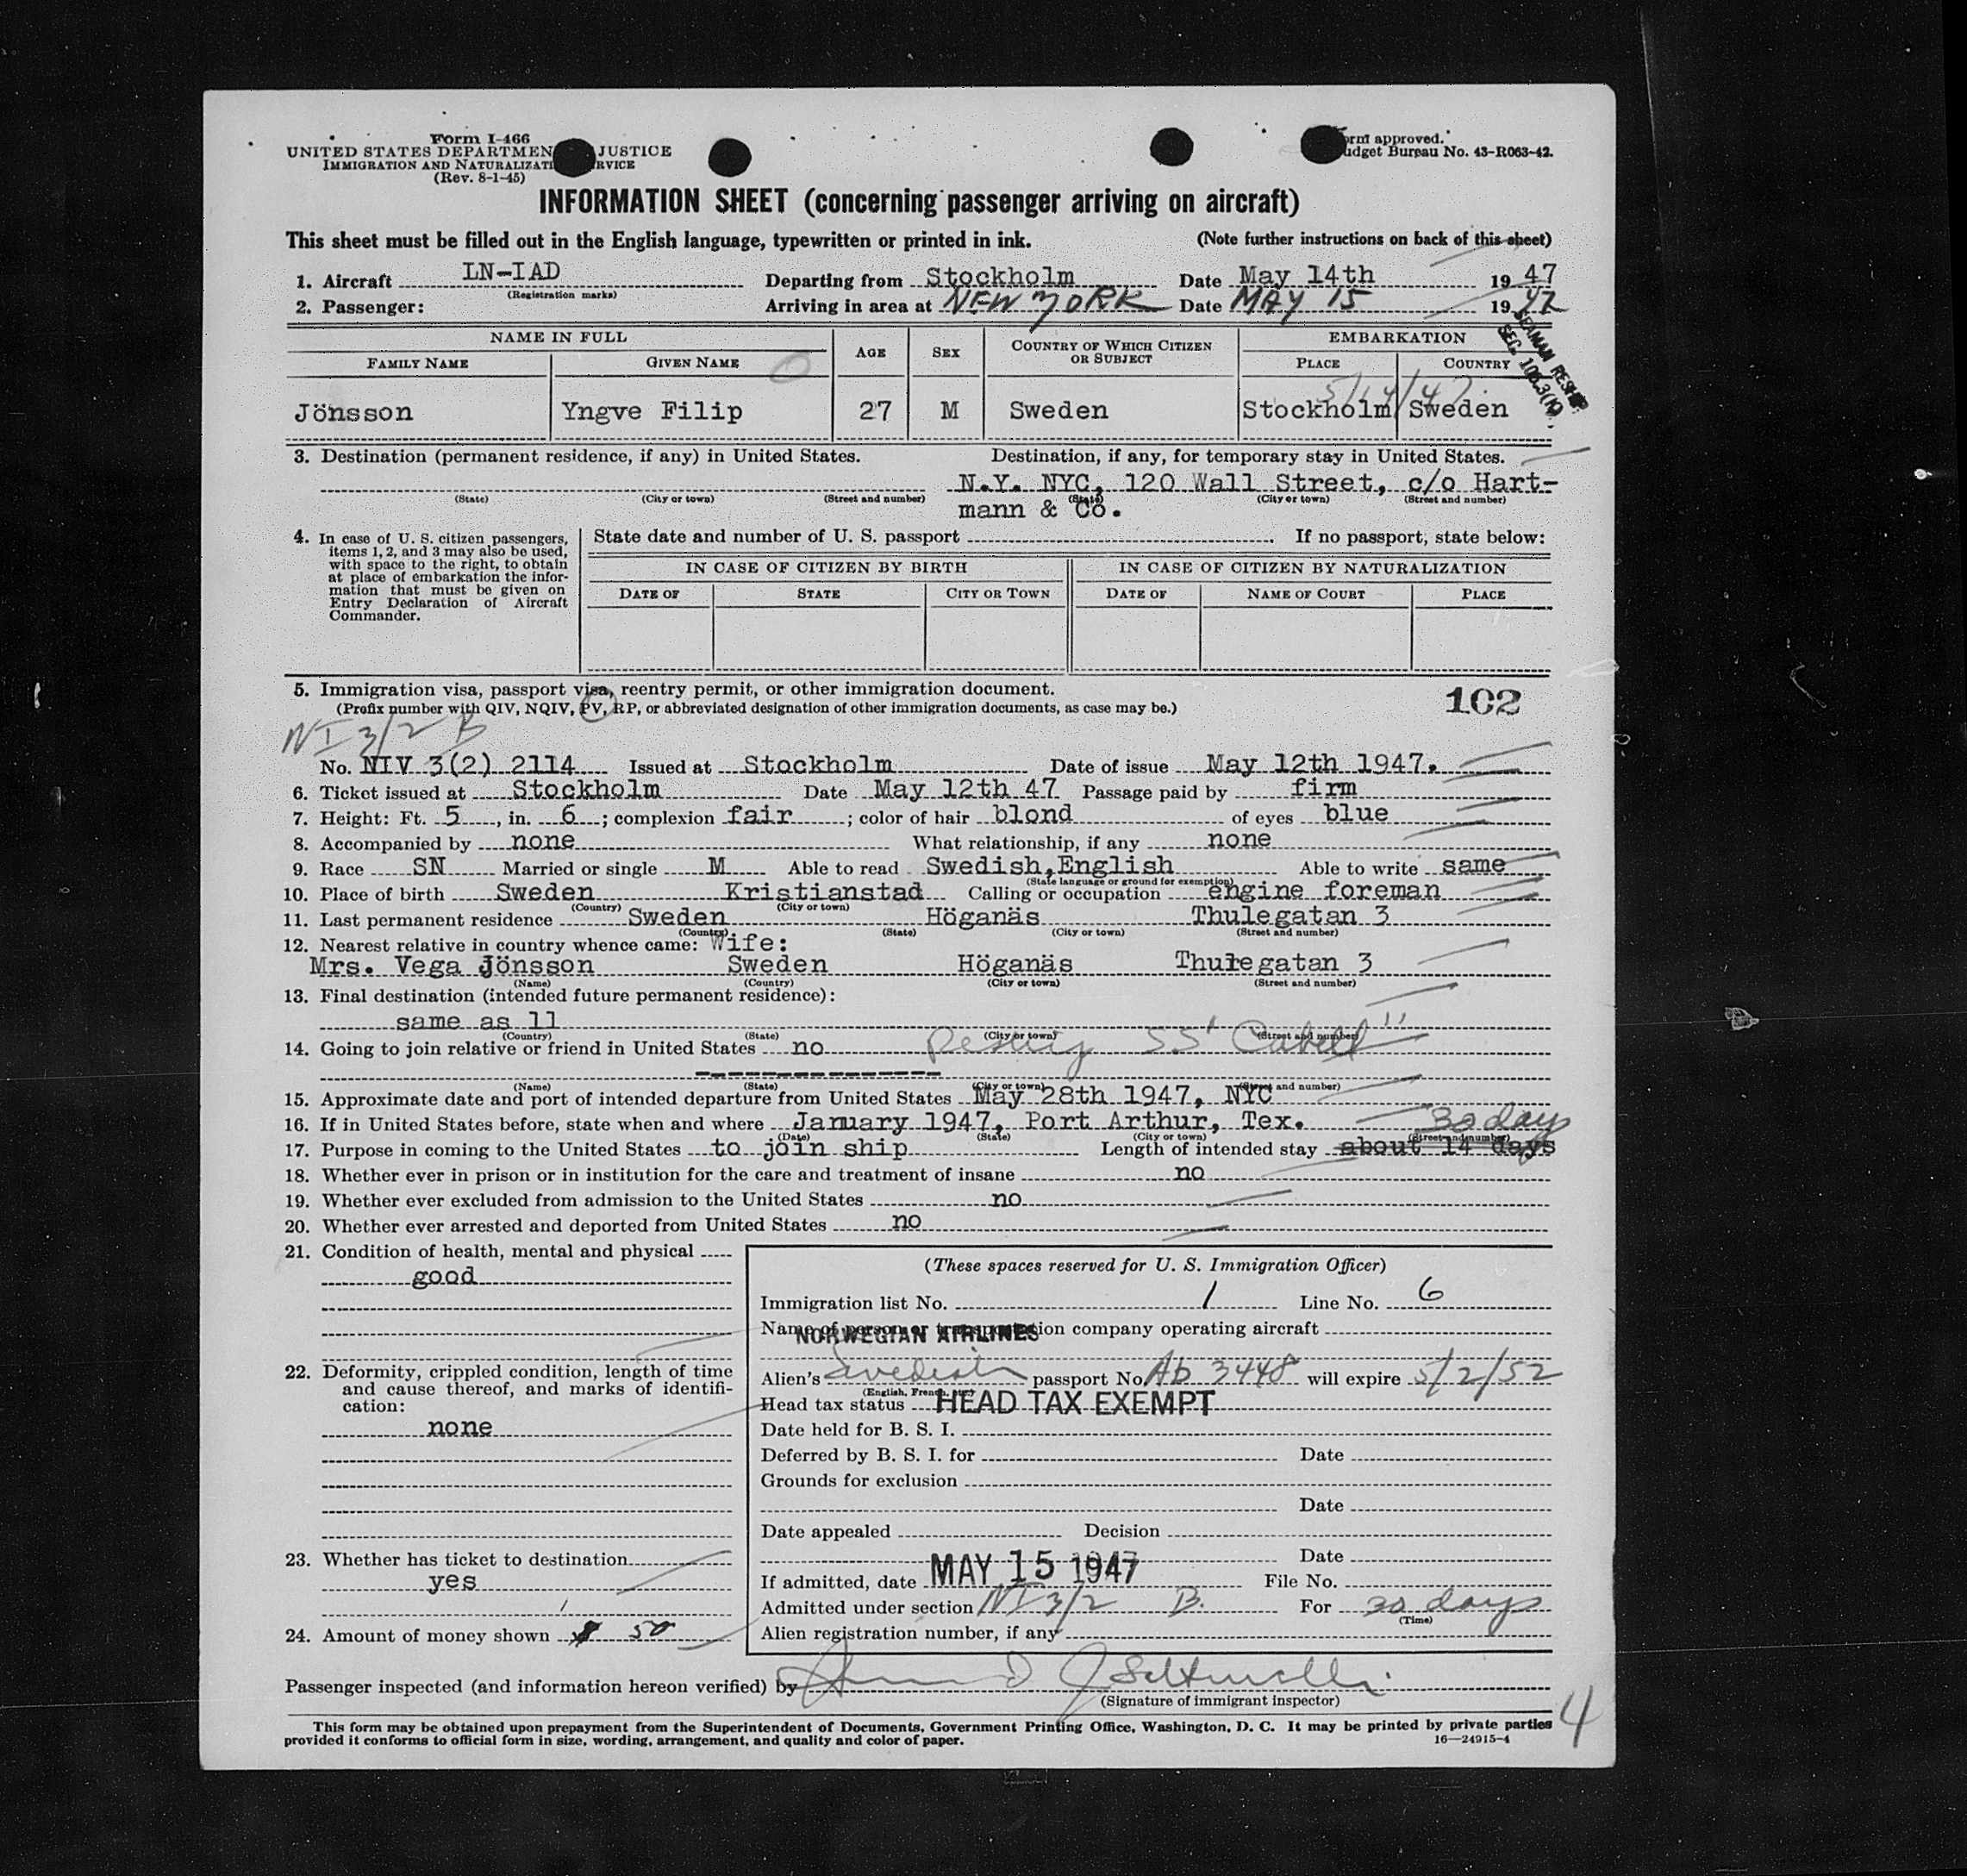 Form I-466
UNITED STATES DEPARTMEN JUSTICE
IMMIGRATION AND NATURALIZATI RVICE
(Rev. 8-1-45)
orm approved.
udget Bureau No. 43-R063-42.
INFORMATION SHEET (concerning passenger arriving on aircraft)
This sheet must be filled out in the English language, typewritten or printed in ink. (Note further instructions on back of this sheet)
1. Aircraft LN-IAD Departing from Stockholm Date May 14th 1947
(Registration marks)
2. Passenger: Arriving in area at NEW YORK Date MAY 15 1947
SEAMAN
SEC.
NAME IN FULL AGE SEX COUNTRY OF WHICH CITIZEN OR SUBJECT EMBARKATION
FAMILY NAME GIVEN NAME PLACE COUNTRY
5/14/47
Jönsson Yngve Filip 27 M Sweden Stockholm Sweden
3. Destination (permanent residence, if any) in United States. Destination, if any, for temporary stay in United States.
N.Y. NYC, 120 Wall Street, c/o Hart-
(State) (City or town) (Street and number) (State) (City or town) (Street and number)
mann & Co.
4. In case of U. S. citizen passengers, items 1, 2, and 3 may also be used, with space to the right, to obtain at place of embarkation the information that must be given on Entry Declaration of Aircraft Commander.
State date and number of U. S. passport . If no passport, state below:
IN CASE OF CITIZEN BY BIRTH IN CASE OF CITIZEN BY NATURALIZATION
DATE OF STATE CITY OR TOWN DATE OF NAME OF COURT PLACE
5. Immigration visa, passport visa, reentry permit, or other immigration document.
(Prefix number with QIV, NQIV, PV, RP, or abbreviated designation of other immigration documents, as case may be.)
102
NI 3/2 B
No. NIV 3(2) 2114 Issued at Stockholm Date of issue May 12th 1947.
6. Ticket issued at Stockholm Date May 12th 47 Passage paid by firm
7. Height: Ft. 5, in. 6; complexion fair; color of hair blond of eyes blue
8. Accompanied by none What relationship, if any none
9. Race SN Married or single M Able to read Swedish,English Able to write same
(State language or ground for exemption)
10. Place of birth Sweden Kristianstad Calling or occupation engine foreman
(Country) (City or town)
11. Last permanent residence Sweden Höganäs Thulegatan 3
(Country) (State) (City or town) (Street and number)
12. Nearest relative in country whence came: Wife:
Mrs. Vega Jönsson Sweden Höganäs Thulegatan 3
(Name) (Country) (City or town) (Street and number)
13. Final destination (intended future permanent residence):
same as 11
(Country) (State) (City or town) (Street and number)
14. Going to join relative or friend in United States no SS
(Name) (State) (City or town) (Street and number)
15. Approximate date and port of intended departure from United States May 28th 1947, NYC
16. If in United States before, state when and where January 1947, Port Arthur, Tex. 30 days
(Date) (State) (City or town) (Street and number)
17. Purpose in coming to the United States to join ship Length of intended stay about 14 days
18. Whether ever in prison or in institution for the care and treatment of insane no
19. Whether ever excluded from admission to the United States no
20. Whether ever arrested and deported from United States no
21. Condition of health, mental and physical
good
22. Deformity, crippled condition, length of time and cause thereof, and marks of identification:
none
23. Whether has ticket to destination
yes
24. Amount of money shown $ 50
(These spaces reserved for U. S. Immigration Officer)
Immigration list No. 1 Line No. 6
Name of person or transportation company operating aircraft
NORWEGIAN AIRLINES
Alien's Swedish passport No. Ab 3448 will expire 5/2/52
(English, French, etc.)
Head tax status HEAD TAX EXEMPT
Date held for B. S. I.
Deferred by B. S. I. for Date
Grounds for exclusion
Date
Date appealed Decision
Date
If admitted, date MAY 15 1947 File No.
Admitted under section NI 3/2 B. For 30 days
(Time)
Alien registration number, if any
Passenger inspected (and information hereon verified) by
(Signature of immigrant inspector)
This form may be obtained upon prepayment from the Superintendent of Documents, Government Printing Office, Washington, D. C. It may be printed by private parties
provided it conforms to official form in size, wording, arrangement, and quality and color of paper. 16—24915-4
4